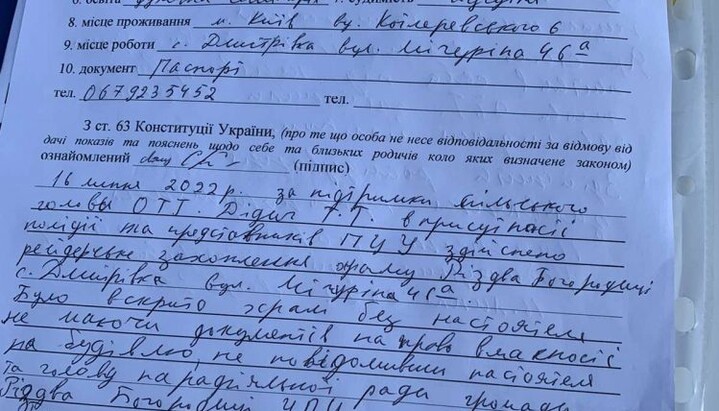 8. місце проживання м. Київ ву. Коілеревського 6
9. місце роботи с. Дмитрівка вул. Мічуріна 46а
10. документ Паспорт
тел. 0679235452 тел.
З ст. 63 Конституції України, (про те що особа не несе відповідальності за відмову від
дачі показів та пояснень щодо себе та близьких родичів коло яких визначене законом)
ознайомлений (підпис)
16 липня 2022 р. за підтримки сільського
голови ОТГ. Дідич Т.Т. в присутності
поліції та представників ПЦУ здійснено
рейдерське захоплення храму Різдва Богородиці
с. Дмитрівка вул. Мічуріна 46а.
Було вскрито храм без настоятеля
не маючи документів на право власності
на будівлю, не повідомивши настоятеля
та голову парафіяльної ради громади
Різдва Богородиці УПЦ